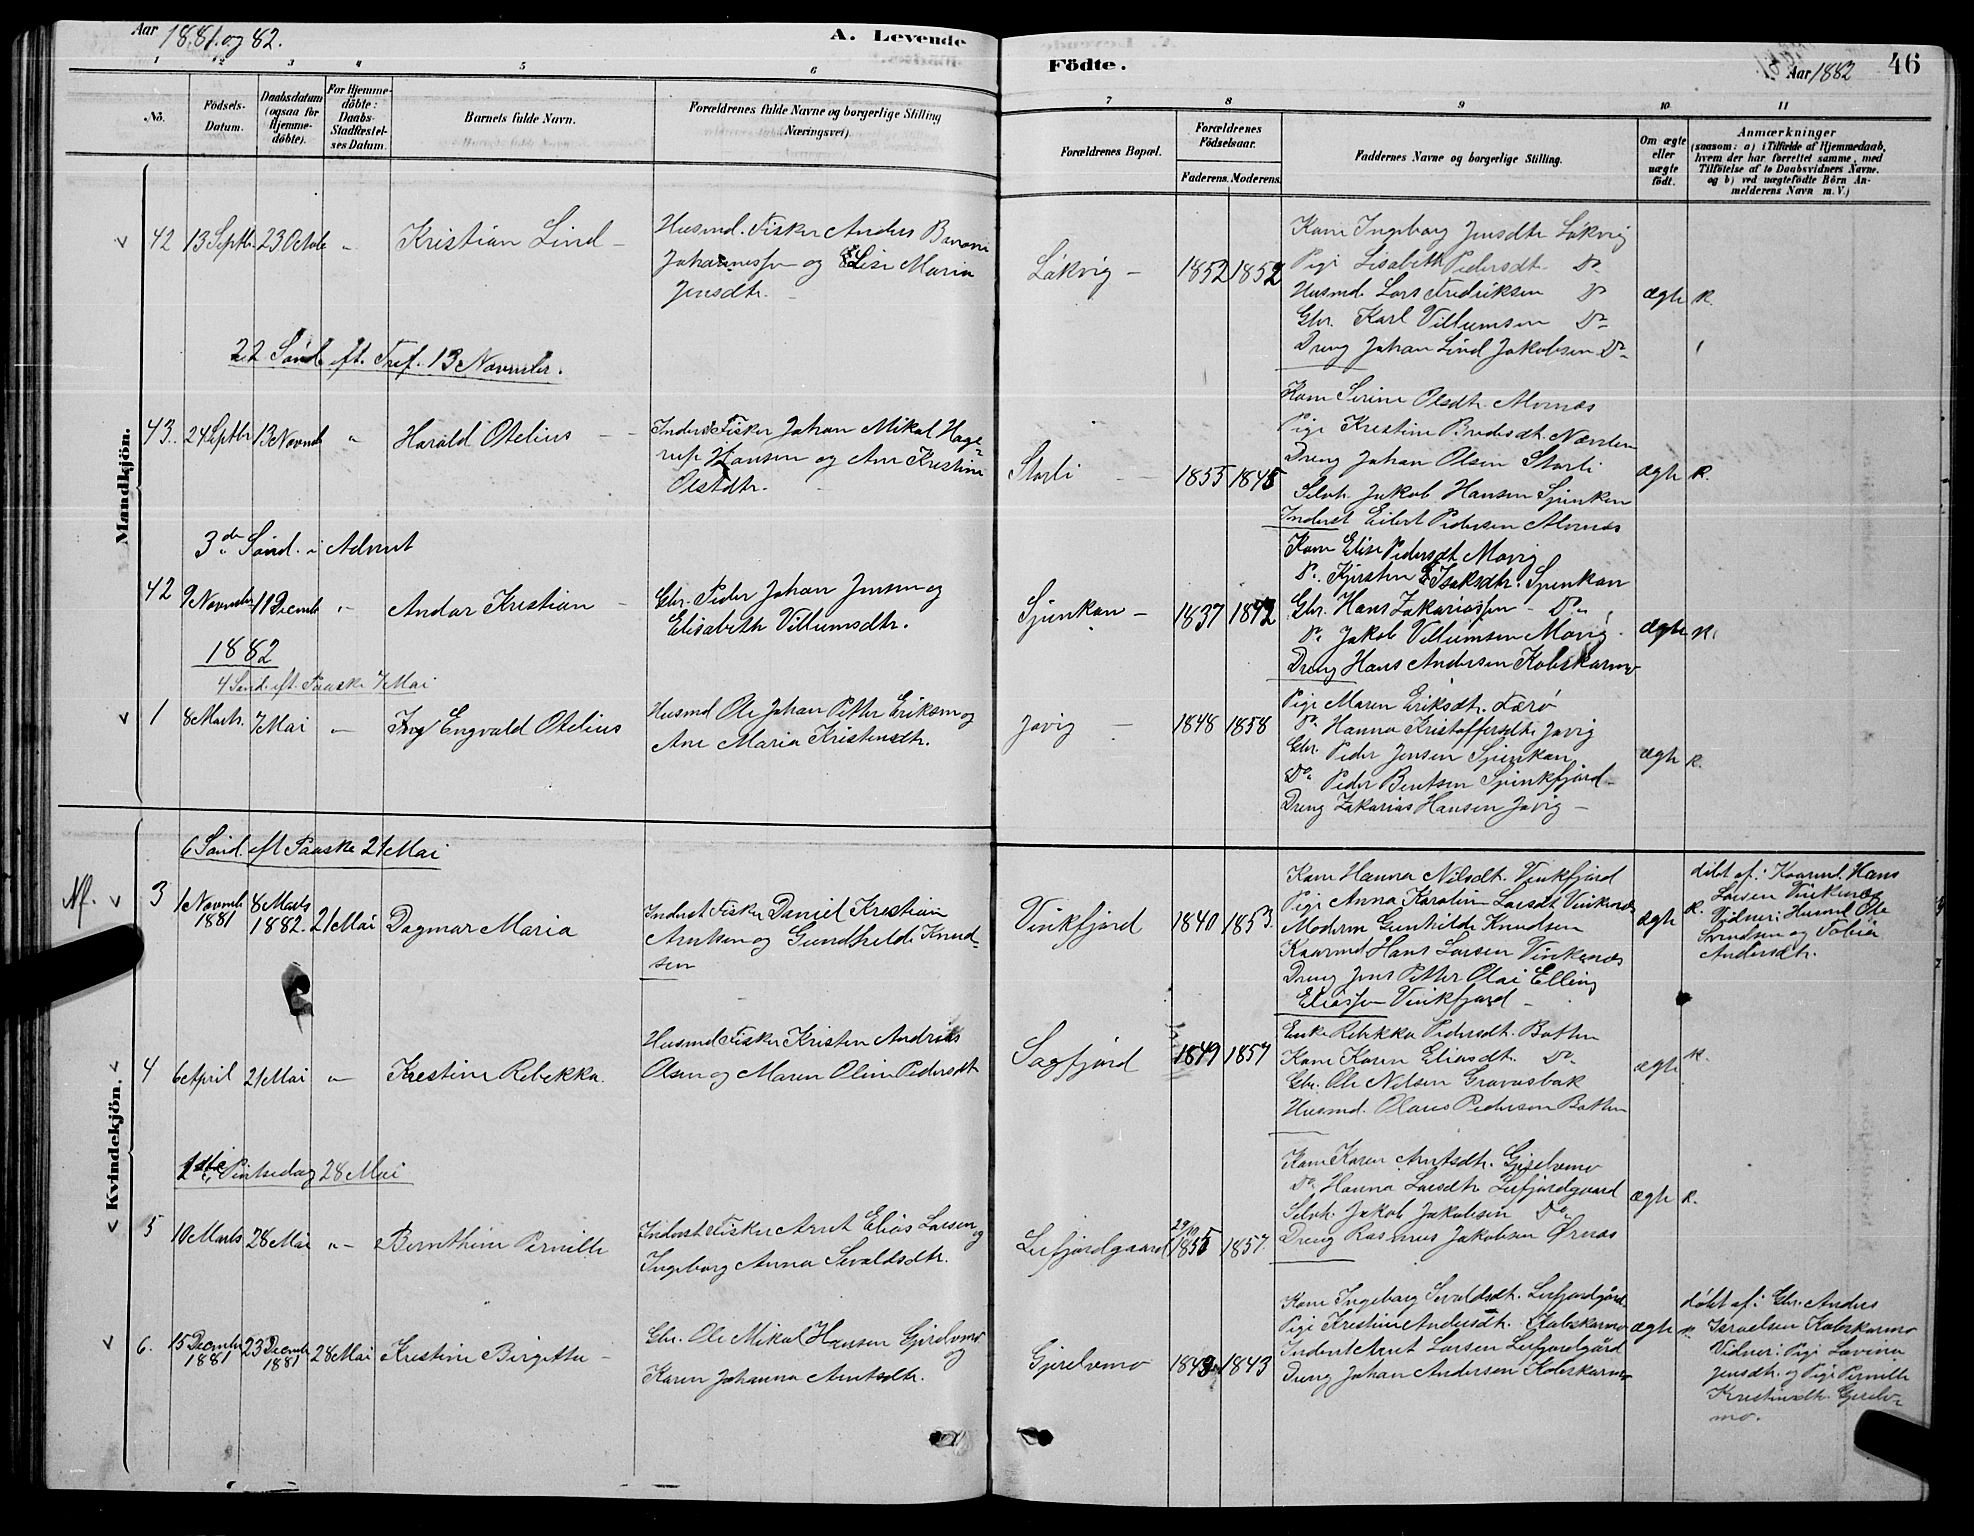 Aar 1881 og 82.
A. Levende
Födte.
Aar 1882
46
1 2 3 4 5 6 7 8 9 10 11
No.
Födsels-
Datum.
Daabsdatum
(ogsaa for
Hjemme-
döbte).
For Hjemme-
döbte:
Daabs-
Stadfæstel-
ses Datum.
Barnets fulde Navn.
Forældrenes fulde Navne og borgerlige Stilling
Næringsvei).
Forældrenes Bopæl.
Forældrenes
Födselsaar.
Faderens. Moderens.
Faddernes Navne og borgerlige Stilling.
Om ægte
eller
uægte
födt.
Anmærkninger
(saasom: a) i Tilfælde af Hjemmedaab,
hvem der har forrettet samme, med
Tilföielse af to Daabsvidners Navne.
og b) ved uægtefödte Börn An-
melderens Navn m. V.)
Mandkjön.
42 13 Septbr 23 Octob " Kristian Lind
Husmd. Fisker Anders
Johannessen og Elise Maria
Jensdtr.
Låkvig 1852 1852
Kone Ingeborg Jensdtr Låkvig
Pige Lisabeth Pedersdt. Do
Husmd. Lars Fredriksen Do
Gbr. Karl Villumsen Do
Dreng Johan Lind Jakobsen Do
ægte K.
22 Sönd. eft. Tref. 13 November.
43. 24 Septbr 13 Novmb " Harald Otelius
Inderst Fisker Johan Mikal Hage-
rup Hansen og Ane Kristine
Olsdtr.
Storli 1855 1845
Kone Serine Olsdtr. Alvnæs
Pige Kristine Bredesdt.
Dreng Johan Olsen Storli
Selvh. Jakob Hansen Sjunkan
Inderst Eilert Pedersen Alvnæs
ægte K.
3de Sönd. i Advent
42 9 November 11 Decemb " Andor Kristian
Gbr. Peder Johan Jensen og
Elisabeth Villumsdtr.
Sjunkan 1837 1842
Kone Elise Pedersdt. Movig
P. Kjersten Isaksdtr. Sjunkan
Gbr. Hans Zakariassen Do
Do Jakob Villumsen Movig
Dreng Hans Andersen Kobskarmo
ægte K.
1882
4 Sönd. eft. Paaske 7 Mai
1 8 Marts. 7 Mai " Engvald Otelius
Husmd Ole Johan Petter Eriksen og
Ane Maria Kristensdtr.
Jovig 1848 1858
Pige Maren Eriksdtr. Færö
Do Hanna Kristoffersdtr Jovig
Gbr. Peder Jensen Sjunkan
Do Peder Bentsen Sjunkfjord
Dreng Zakarias Hansen Jovig
ægte K.
Kvindekjön.
6 Sönd. eft Paaske 21 Mai
Nf. 3 1 Novmb 1881 8 Marts 1882. 21 Mai Dagmar Maria
Inderst Fisker Daniel Kristian
Arntsen og Gundhilde Knud-
sen
Vinkfjord 1840 1853.
Kone Hanna Nilsdt. Vinkfjord
Pige Anna Karoline Larsdt Vinkenæs
Moderen Gunhilde Knudsen
Kaarmd Hans Larsen Vinkenæs
Dreng Jens Petter Olai Elling
Eliassen Vinkfjord
ægte K.
döbt af: Kaarmd. Hans
Larsen Vinkenæs
Vidner: Husmd. Ole
Svendsen og Tobia
Andersdtr.
4 6 April 21 Mai " Kristine Rebekka.
Husmd Fisker Kristen Andreas
Olsen og Maren Oline Pedersdt
Sagfjord 1849 1857
Enke Rebekka Pedersdt. Botten
Kone Karen Eliasdt. Do
Gbr. Ole Nilsen Gravasbak
Husmd. Olaus Pedersen Botten
ægte K.
2den Pintsedag 28 Mai
5 10 Marts 28 Mai " Bernthine Pernille
Inderst Fisker Arnt Elias Larsen og
Ingeborg Anna Sevaldsdtr.
Leifjordgaard 29/10 1855 1857.
Kone Karen Arntsdtr. Gjerelvmo
Do Hanna Larsdtr Leifjordgaard
Selvh. Jakob Jakobsen Do
Dreng Rasmus Jakobsen Ørnæs
ægte K.
6. 15 Decembr 1881 23 Decembr 1881 28 Mai Kristine Birgitte
Gbr. Ole Mikal Hansen Gjerelvmo og
Karen Johanna Arntsdtr.
Gjerelvmo 1843 1843
Kone Ingeborg Sevaldsdt. Leifjordgård
Pige Kristine Andersdt. Kobskarmo
Inderst Arnt Larsen Leifjordgård
Dreng Johan Andersen Kobskarmo
ægte K.
döbt af: Gbr. Anders
Israelsen Kobskarmo
Vidner: Pige Lovina
Jensdtr. og Pige Pernille
Kristinsdtr. Gjerelv-
mo.